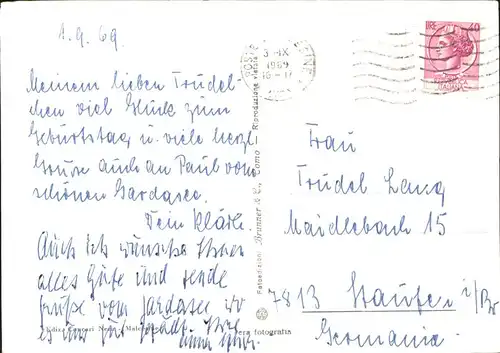 1.9.69.
Meinem lieben Trudel-
chen viel Glück zum
Geburtstag u. viele herzl.
Grüsse auch an Paul vom
schönen Gardasee.
Dein
Auch ich wünsche Ihnen
alles Gute und sende
Grüße vom Gardasee wo
es
Ediz.
POSTE
IX
1969
LIRE 40
ITALIANE
Fotoedizioni Brunner & C., Como
Riproduzione vietata
Vera fotografia
Frau
Trudel Lang
Maidlebach 15
7813 Staufen i/Br
Germania.